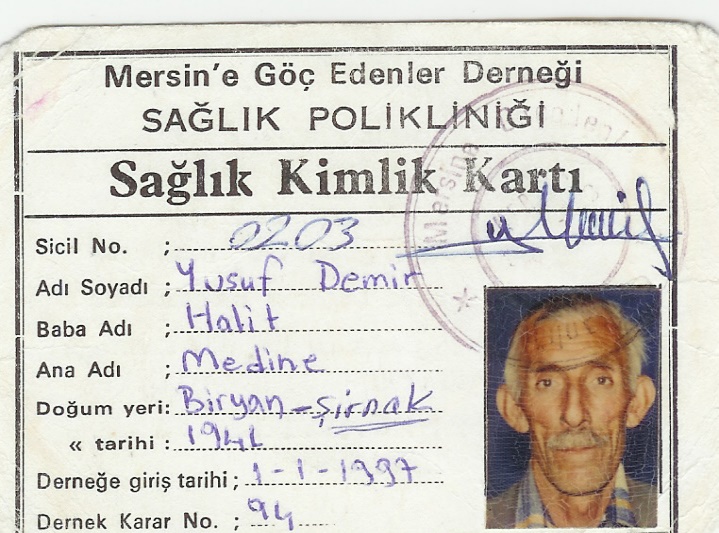 Mersin'e Göç Edenler Derneği
SAĞLIK POLİKLİNİĞİ
Sağlık Kimlik Kartı
Sicil No. ; 0203
Adı Soyadı ; Yusuf Demir
Baba Adı ; Halit
Ana Adı ; Medine
Doğum yeri: Biryan - Şirnak
« tarihi : 1941
Derneğe giriş tarihi ; 1-1-1997
Dernek Karar No. ; 94
Mersine